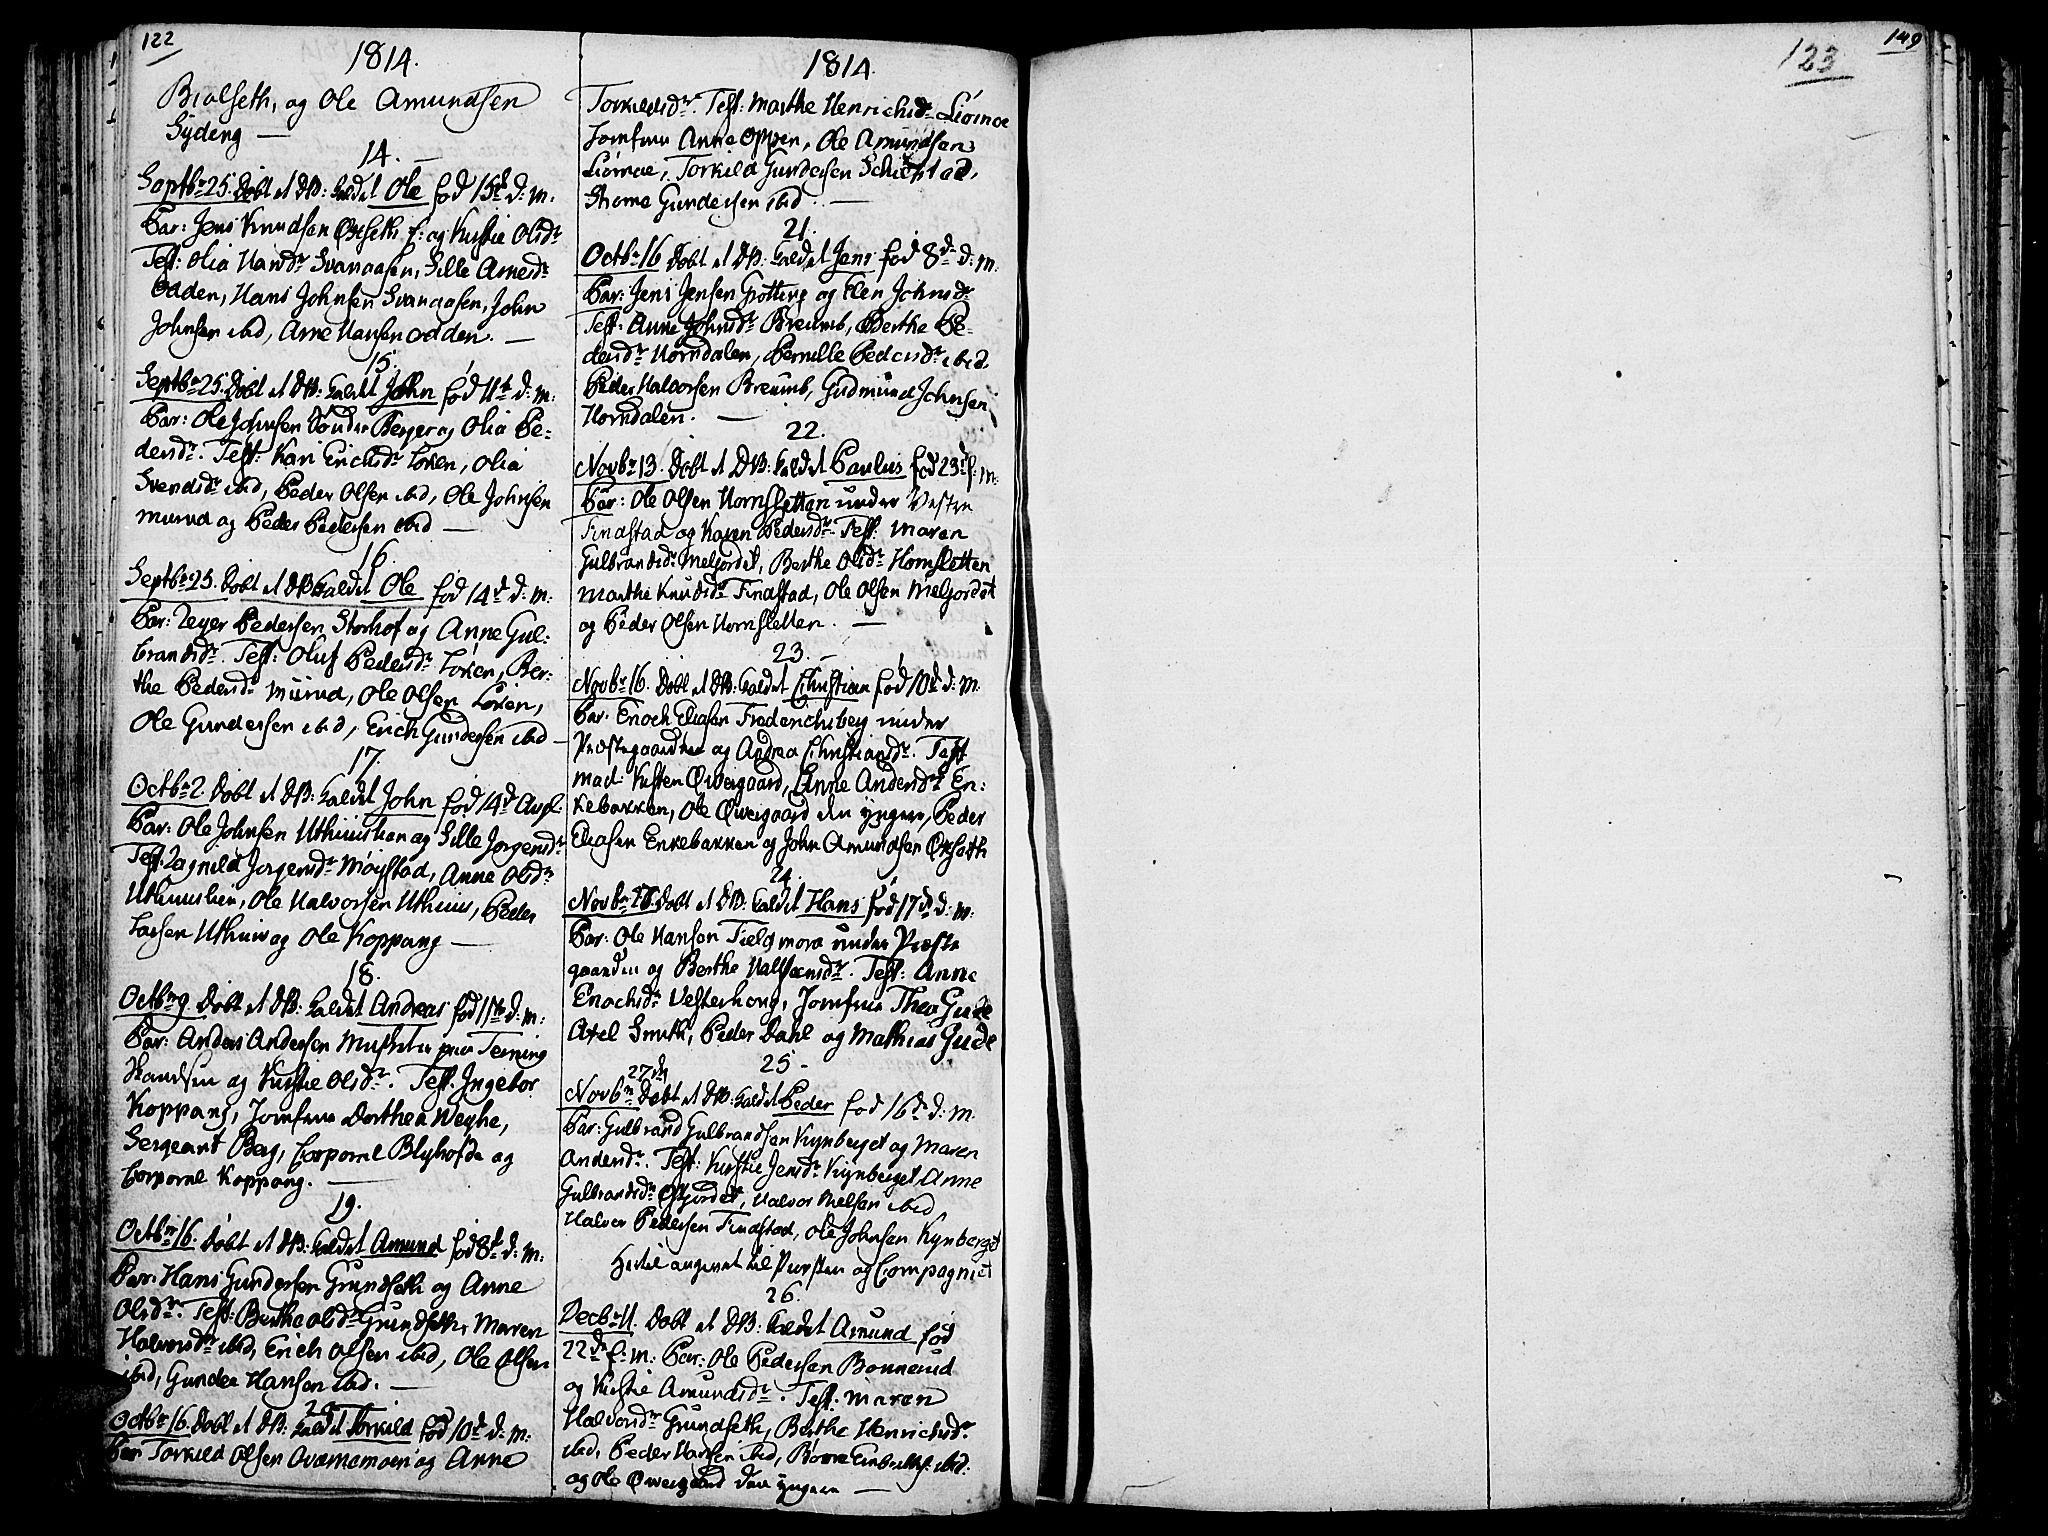 122
1814.
Biølseth, og Ole Amundsen
Sydeng —
14. —
Septbr 25. Døbt et DB: kaldet Ole fød 15d d: M.
Par: Jens Knudsen Øxseth f: og Kirstie Olsdr
Test: Olia Hansdr Svanaasen, Sille Arnesdr
Odden, Hans Johnsen Svanaasen, John
Johnsen ibid, Arne Hansen Odden. —
15.
Septbr 25. Døbt et DB: kaldet John fød 11te d: M:
Par: Ole Johnsen Sønder Berger og Olia Pe-
dersdr. Test: Kari Erichsdr Løken, Olia
Svendsdr ibid, Peder Olsen ibid, Ole Johnsen
Murud og Peder Pedersen ibid —
16.
Septbr 25. Døbt et DB kaldet Ole fød 14d d: M:
Par: Reyer Pedersen Storhof og Anne Gul-
brandsdr. Test: Oluf Pedersdr Løken, Ber-
the Pedersdr Murud, Ole Olsen Løken,
Ole Gundersen ibid, Erich Gundersen ibid —
17.
Octbr 2. Døbt et DB: kaldet John fød 14d Aug.
Par: Ole Johnsen Uthuuslien og Sille Jørgensdr
Test: Ragnild Jørgensdr Møystad, Anne Olsdr
Uthuuslien, Ole Halvorsen Uthuus, Peder
Larsen Uthuus og Ole Koppang —
18.
Octbr 9. Døbt et DB: kaldet Andreas fød 11te d: M:
Par: Anders Andersen Musketer paa Terning
Skandsen og Kirstie Olsdr. Test. Ingebor
Koppang, Jomfrue Dorthea Weghe,
Sergeant Berg, Corporal Blyhofde og
Corporal Koppang. —
19.
Octbr 16. Døbt et DB: kaldet Amund fød 8d d: M:
Par: Hans Gundersen Grundseth og Anne
Olsdr. Test: Berthe Olsdr Grundseth, Maren
Halvorsdr ibid, Erich Olsen ibid, Ole Olsen
ibid, Gunder Hansen ibid. —
20
Octbr 16. Døbt et DB: kaldet Torkild fød 10d d: M:
Par Torkild Olsen Qværnemoen og Anne
1814.
Torkildsdr. Test: Marthe Henrichsdr Liømoe
Jomfrue Anne Opsen, Ole Amundsen
Liømoe, Torkild Gundersen Schiefstad,
Thome Gundersen ibid. —
21.
Octbr 16 Døbt et DB: kaldet Jens fød 8d d: M:
Par: Jens Jensen Grotting og Elen Johnsdr
Test: Anne Johnsdr Breumb, Berthe Pe-
dersdr Horndalen, Pernille Pedersdr ibid,
Peder Halvorsen Breumb, Gudmund Johnsen
Horndalen. —
22.
Novbr 13. Døbt et DB: kaldet Paulus fød 23d f: M:
Par: Ole Olsen Hornsletten under Vestre
Findstad og Karen Pedersdr. Test: Maren
Gulbrandsdr Melgordet, Berthe Olsdr Hornsletten
Marthe Knudsdr Findstad, Ole Olsen Melgordet
og Peder Olsen Hornsletten. —
23. —
Novbr 16. Døbt et DB: kaldet Christian fød 10d d: M:
Par: Enoch Eliasen Frederichsberg under
Præstegaarden og Andrea Christiansdr. Test
Mad. Kirsten Qwergaard, Anne Andersdr En-
kebakken, Ole Qwergaard den yngere, Peder
Eliasen Enkebakken og John Amundsen Øxseth
24.
Novbr 26 Døbt et DB: kaldet Hans fød 17d d: M:
Par: Ole Hansen Fielgmora under Præste
gaarden og Berthe Halvorsdr. Test: Anne
Enochsdr Vesterhaug, Jomfrue Thea Gude
Axel Smith, Peder Dahl og Mathias Gude
25 -
27d
Novbr Døbt et DB: kaldet Peder fød 16d d: M
Par: Gulbrand Gulbrandsen Kynberget og Maren
Andersdr. Test: Kirstie Jensdr Kynberget Anne
Gulbrandsdr Øgordet, Halvor Nielsen ibid
Halvor Pedersen Findstad, Ole Johnsen Kynberget
Hertil angivet til Provsten og Compagniet
26.
Decbr 11. Døbt et DB: kaldet Amund fød
22d f: M: Par: Ole Pedersen Bonnerud
og Kirstie Amundsdr. Test: Maren
Halvorsdr Grundseth, Berthe Henrichsdr
ibid, Peder Hansen ibid, Børre Embrets: ibid:
og Ole Qwergaard den yngere —
123
149